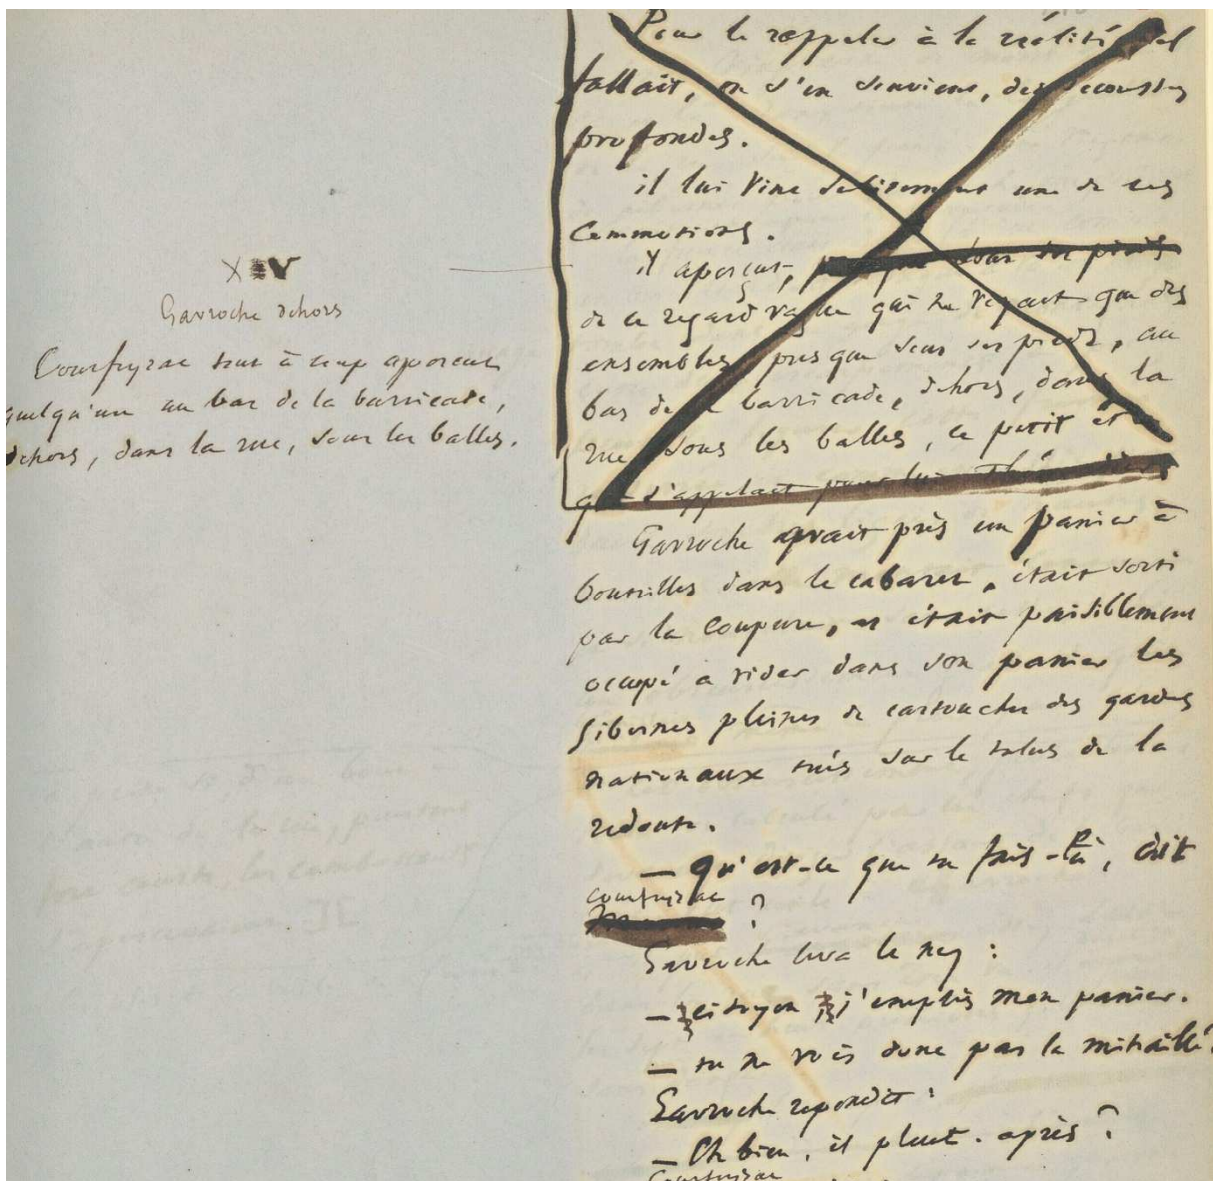 XIV
Gavroche dehors
Courfeyrac tout à coup aperçut
quelqu'un au bas de la barricade,
dehors, dans la rue, sous les balles.
Pour le rappeler à la réalité, il
fallait, on s'en souvient, des secousses
profondes.
il lui vint une de ces
commotions.
il aperçut, presque sous ses pieds
de ce regard vague qui ne reçoit que des
ensembles, presque sous ses pieds, au
bas de la barricade, dehors, dans la
rue sous les balles, ce petit être
qui s'appelait pour lui Thénardier.
Gavroche avait pris un panier à
bouteilles dans le cabaret, était sorti
par la coupure, et était paisiblement
occupé à vider dans son panier les
gibernes pleines de cartouches des gardes
nationaux tués sur le talus de la
redoute.
— Qu'est-ce que tu fais-là, dit
Courfeyrac ?
Gavroche leva le nez :
— citoyen j'emplis mon panier.
— tu ne vois donc pas la mitraille ?
Gavroche répondit :
— Eh bien, il pleut. après ?
Courfeyrac